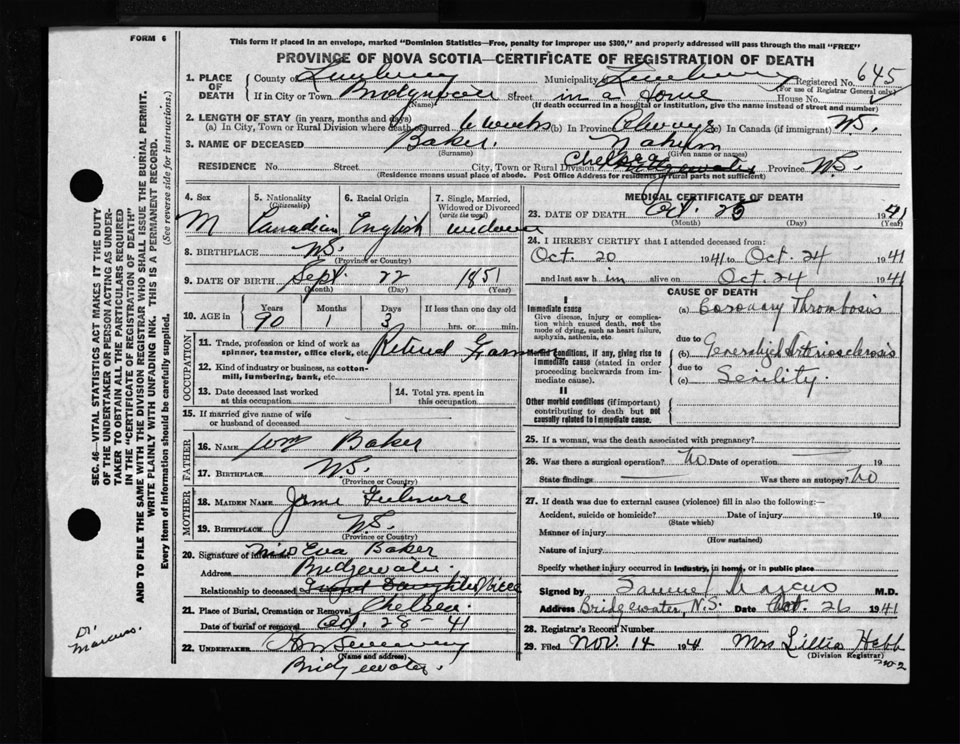 FORM 6
This form if placed in an envelope, marked "Dominion Statistics—Free, penalty for improper use $300," and properly addressed will pass through the mail "FREE"
PROVINCE OF NOVA SCOTIA—CERTIFICATE OF REGISTRATION OF DEATH
1. PLACE OF DEATH County of Lunenburg Municipality Lunenburg Registered No. 645
(For use of Registrar General only)
If in City or Town Bridgewater Street in a Home House No.
(Name) (If death occurred in a hospital or institution, give the name instead of street and number)
2. LENGTH OF STAY (in years, months and days)
(a) In City, Town or Rural Division where death occurred 6 weeks (b) In Province Always (c) In Canada (if immigrant) N.S.
3. NAME OF DECEASED Baker.
(Surname) (Given name or names)
RESIDENCE No. Street City, Town or Rural Division Chelsea Bridgewater Province N.S.
(Residence means usual place of abode. Post Office Address for residents of rural parts not sufficient)
4. Sex M
5. Nationality (Citizenship) Canadian
6. Racial Origin English
7. Single, Married, Widowed or Divorced (write the word)
8. BIRTHPLACE N.S.
(Province or Country)
9. DATE OF BIRTH Sept. 22 1851
(Month) (Day) (Year)
10. AGE in Years 90 Months 1 Days 3 If less than one day old hrs. or min.
OCCUPATION
11. Trade, profession or kind of work as spinner, teamster, office clerk, etc. Retired Farmer
12. Kind of industry or business, as cotton-mill, lumbering, bank, etc.
13. Date deceased last worked at this occupation
14. Total yrs. spent in this occupation
15. If married give name of wife or husband of deceased
FATHER
16. NAME Baker
17. BIRTHPLACE N.S.
(Province or Country)
MOTHER
18. MAIDEN NAME Jane
19. BIRTHPLACE N.S.
(Province or Country)
20. Signature of informant Miss Eva Baker
Address Bridgewater
Relationship to deceased Niece
21. Place of Burial, Cremation or Removal Chelsea.
Date of burial or removal Oct. 28-41
22. UNDERTAKER
(Name and address)
Bridgewater.
MEDICAL CERTIFICATE OF DEATH
23. DATE OF DEATH Oct. 25 1941
(Month) (Day) (Year)
24. I HEREBY CERTIFY that I attended deceased from:
Oct. 20 1941 to Oct. 24 1941
and last saw him alive on Oct. 24 1941
CAUSE OF DEATH
I
Immediate cause
Give disease, injury or complication which caused death, not the mode of dying, such as heart failure, asphyxia, asthenia, etc.
(a) Coronary Thrombosis
due to
Morbid conditions, if any, giving rise to immediate cause (stated in order proceeding backwards from immediate cause).
(b) Generalized Arteriosclerosis
due to
(c) Senility.
II
Other morbid conditions (if important) contributing to death but not causally related to immediate cause.
25. If a woman, was the death associated with pregnancy?
26. Was there a surgical operation? no Date of operation 19
State findings Was there an autopsy? no
27. If death was due to external causes (violence) fill in also the following:—
Accident, suicide or homicide? Date of injury 19
(State which)
Manner of injury
(How sustained)
Nature of injury
Specify whether injury occurred in industry, in home, or in public place
Signed by Samuel Marcus M.D.
Address Bridgewater, N.S. Date Oct. 26 1941
28. Registrar's Record Number
29. Filed Nov. 14 194 Mrs Lillia Hebb
(Division Registrar)
SEC. 46—VITAL STATISTICS ACT MAKES IT THE DUTY
OF THE UNDERTAKER OR PERSON ACTING AS UNDER-
TAKER TO OBTAIN ALL THE PARTICULARS REQUIRED
IN THE "CERTIFICATE OF REGISTRATION OF DEATH"
AND TO FILE THE SAME WITH THE DIVISION REGISTRAR WHO SHALL ISSUE THE BURIAL PERMIT.
WRITE PLAINLY WITH UNFADING INK. THIS IS A PERMANENT RECORD.
Every item of information should be carefully supplied. (See reverse side for instructions.)
Dr Marcus.